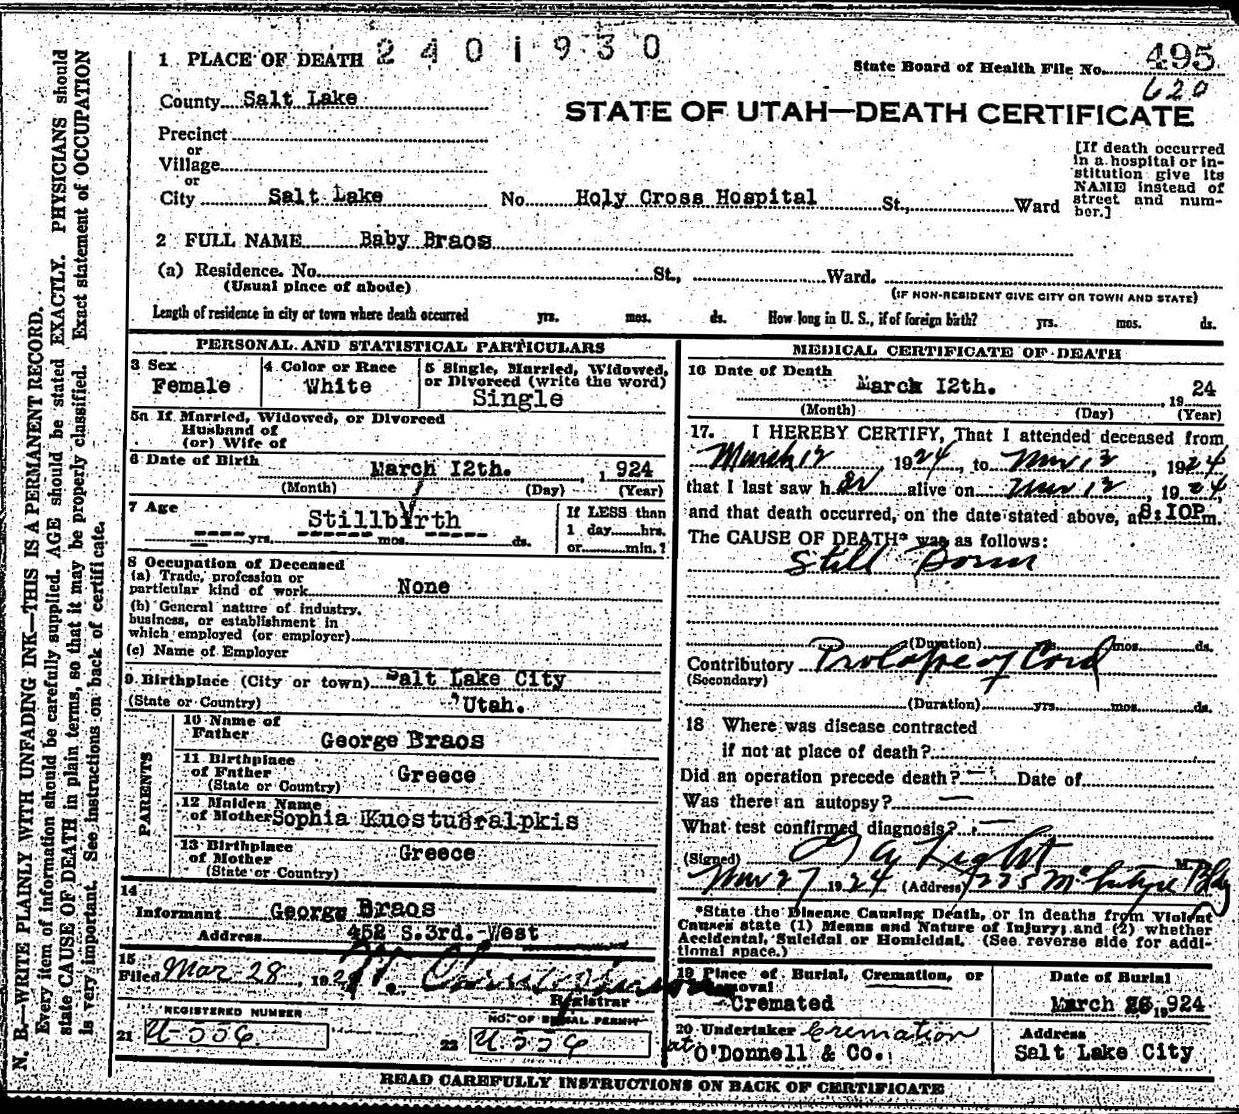 N. B.—WRITE PLAINLY WITH UNFADING INK—THIS IS A PERMANENT RECORD.
Every item of information should be carefully supplied. AGE should be stated EXACTLY. PHYSICIANS should
state CAUSE OF DEATH in plain terms, so that it may be properly classified. Exact statement of OCCUPATION
is very important. See instructions on back of certificate.
1 PLACE OF DEATH 2401930
State Board of Health File No. 495
620
County Salt Lake
STATE OF UTAH—DEATH CERTIFICATE
Precinct
or
Village
or
City Salt Lake No. Holy Cross Hospital St., Ward
[If death occurred
in a hospital or in-
stitution give its
NAME instead of
street and num-
ber.]
2 FULL NAME Baby Braos
(a) Residence. No. St., Ward.
(Usual place of abode) (IF NON-RESIDENT GIVE CITY OR TOWN AND STATE)
Length of residence in city or town where death occurred yrs. mos. ds. How long in U. S., if of foreign birth? yrs. mos. ds.
PERSONAL AND STATISTICAL PARTICULARS
3 Sex
Female
4 Color or Race
White
5 Single, Married, Widowed,
or Divorced (write the word)
Single
5a If Married, Widowed, or Divorced
Husband of
(or) Wife of
6 Date of Birth
March 12th. , 1924
(Month) (Day) (Year)
7 Age
Stillbirth
yrs. mos. ds.
If LESS than
1 day hrs.
or min.?
8 Occupation of Deceased
(a) Trade, profession or
particular kind of work None
(b) General nature of industry,
business, or establishment in
which employed (or employer)
(c) Name of Employer
9 Birthplace (City or town) Salt Lake City
(State or Country) Utah.
PARENTS
10 Name of
Father George Braos
11 Birthplace
of Father Greece
(State or Country)
12 Maiden Name
of Mother Sophia
13 Birthplace
of Mother Greece
(State or Country)
14
Informant George Braos
Address 452 S.3rd. West
15
Filed Mar 28, 192
Registrar
REGISTERED NUMBER
21 U-556
NO. OF BURIAL PERMIT
22 U-556
MEDICAL CERTIFICATE OF DEATH
16 Date of Death
March 12th. , 19 24
(Month) (Day) (Year)
17. I HEREBY CERTIFY, That I attended deceased from
March 12, 1924, to Mar 12, 1924
that I last saw her alive on Mar 12, 1924,
and that death occurred, on the date stated above, at 8:10P m.
The CAUSE OF DEATH* was as follows:
Still Born
(Duration) mos. ds.
Contributory Prolapse of Cord
(Secondary)
(Duration) yrs. mos. ds.
18 Where was disease contracted
if not at place of death?
Did an operation precede death? — Date of
Was there an autopsy? —
What test confirmed diagnosis? —
(Signed) Light M. D.
Mar 27 1924 (Address) 225 McIntyre Bldg
*State the Disease Causing Death, or in deaths from Violent
Causes state (1) Means and Nature of Injury; and (2) whether
Accidental, Suicidal or Homicidal. (See reverse side for addi-
tional space.)
19 Place of Burial, Cremation, or
Removal
Cremated
Date of Burial
March 26, 1924
20 Undertaker Cremation
at O'Donnell & Co.
Address
Salt Lake City
READ CAREFULLY INSTRUCTIONS ON BACK OF CERTIFICATE